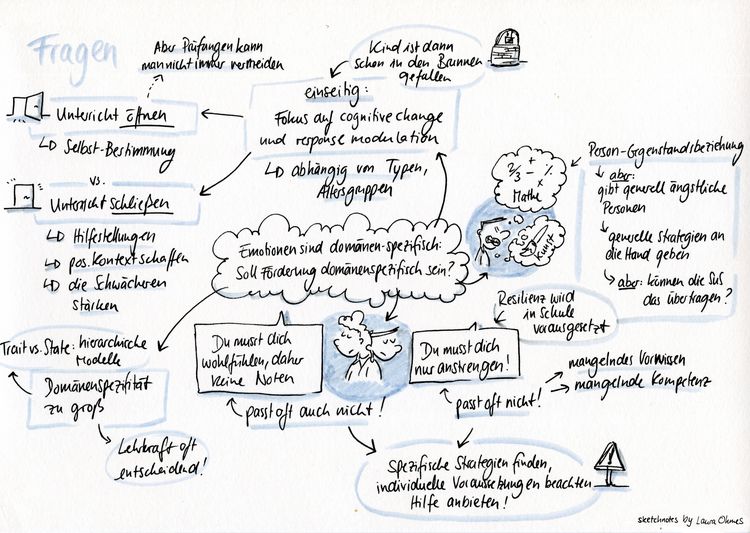 Fragen
Aber Prüfungen kann
man nicht immer vermeiden
Kind ist dann
schon in den Brunnen
gefallen
einseitig:
Fokus auf cognitive change
und response modulation
↳ abhängig von Typen,
Altersgruppen
Unterricht öffnen
↳ Selbst-Bestimmung
vs.
Unterricht schließen
↳ Hilfestellungen
↳ pos. Kontext schaffen
↳ die Schwächeren
stärken
Emotionen sind domänen-spezifisch:
Soll Förderung domänenspezifisch sein?
2/3 - + ÷ ×
Mathe
Kunst
Person-Gegenstandsbeziehung
aber:
gibt generell ängstliche
Personen
generelle Strategien an
die Hand geben
aber: können die SuS
das übertragen?
Resilienz wird
in Schule
vorausgesetzt
Trait vs. State: hierarchische
Modelle
Domänenspezifität
zu groß
Lehrkraft oft
entscheidend!
Du musst dich
wohlfühlen, daher
keine Noten
passt oft auch nicht!
Du musst dich
nur anstrengen!
passt oft nicht!
mangelndes Vorwissen
mangelnde Kompetenz
Spezifische Strategien finden,
individuelle Voraussetzungen beachten
Hilfe anbieten!
sketchnotes by Laura Ohmes